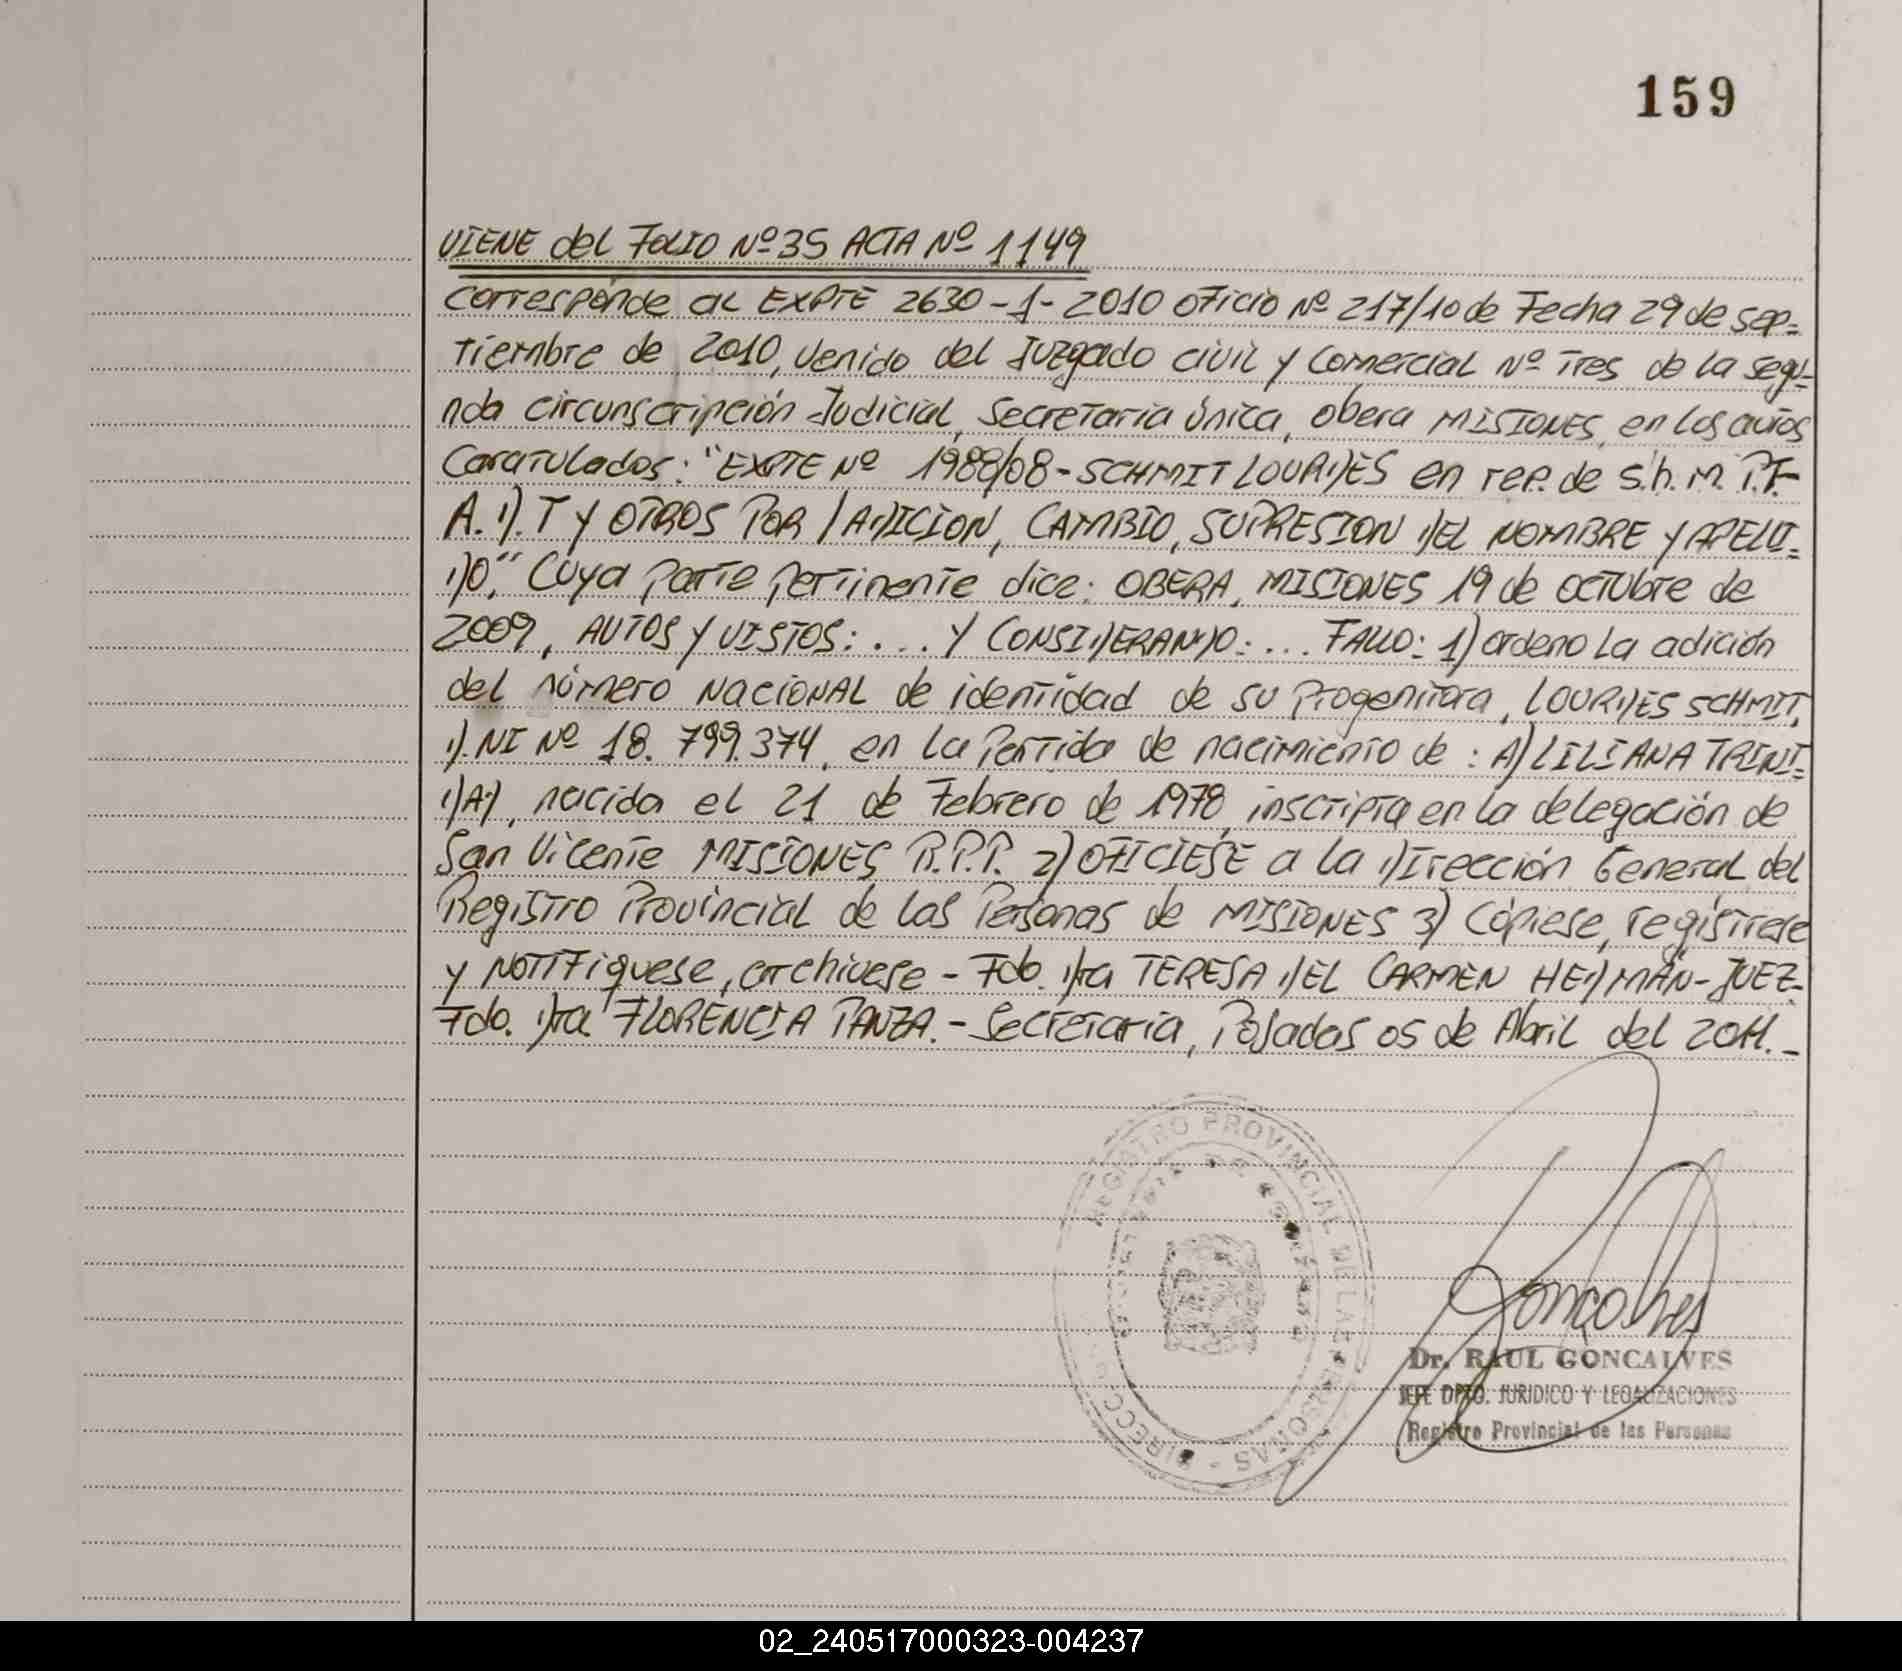 159
VIENE del FOLIO Nº 35 ACTA Nº 1149
Corresponde al EXPTE 2630-1-2010 oficio Nº 217/10 de Fecha 29 de sep-
tiembre de 2010, venido del Juzgado civil y Comercial Nº Tres de la segu-
nda circunscripción Judicial, Secretaria única, obera MISIONES, en los autos
Caratulados: "EXPTE Nº 1988/08-SCHMIT LOURDES en rep. de s.h. M. P.F.
A.D.T Y OTROS POR /ADICION, CAMBIO, SUPRESION DEL NOMBRE Y APELLI-
DO", Cuya parte pertinente dice: OBERA, MISIONES 19 de octubre de
2009, AUTOS Y VISTOS: ... Y CONSIDERANDO: ... FALLO: 1) ordeno la adición
del número NACIONAL de identidad de su Progenitora, LOURDES SCHMIT,
D.NI Nº 18.799.374, en la Partida de nacimiento de: A) LILIANA TRINI-
DAD, nacida el 21 de Febrero de 1978, inscripta en la delegación de
San Vicente MISIONES R.P.P. 2) OFICIESE a la Dirección General del
Registro Provincial de las Personas de MISIONES 3) Cópiese, regístrese
y NOTIFIquese, archivese - Fdo. Dra TERESA DEL CARMEN HEDMAN-JUEZ-
Fdo. Dra FLORENCIA PANZA.- Secretaria, Posadas 05 de Abril del 2011.-
REGISTRO PROVINCIAL DE LAS PERSONAS -
Goncalves
Dr. RAUL GONCALVES
JEFE DPTO. JURIDICO Y LEGALIZACIONES
Registro Provincial de las Personas
02_240517000323-004237